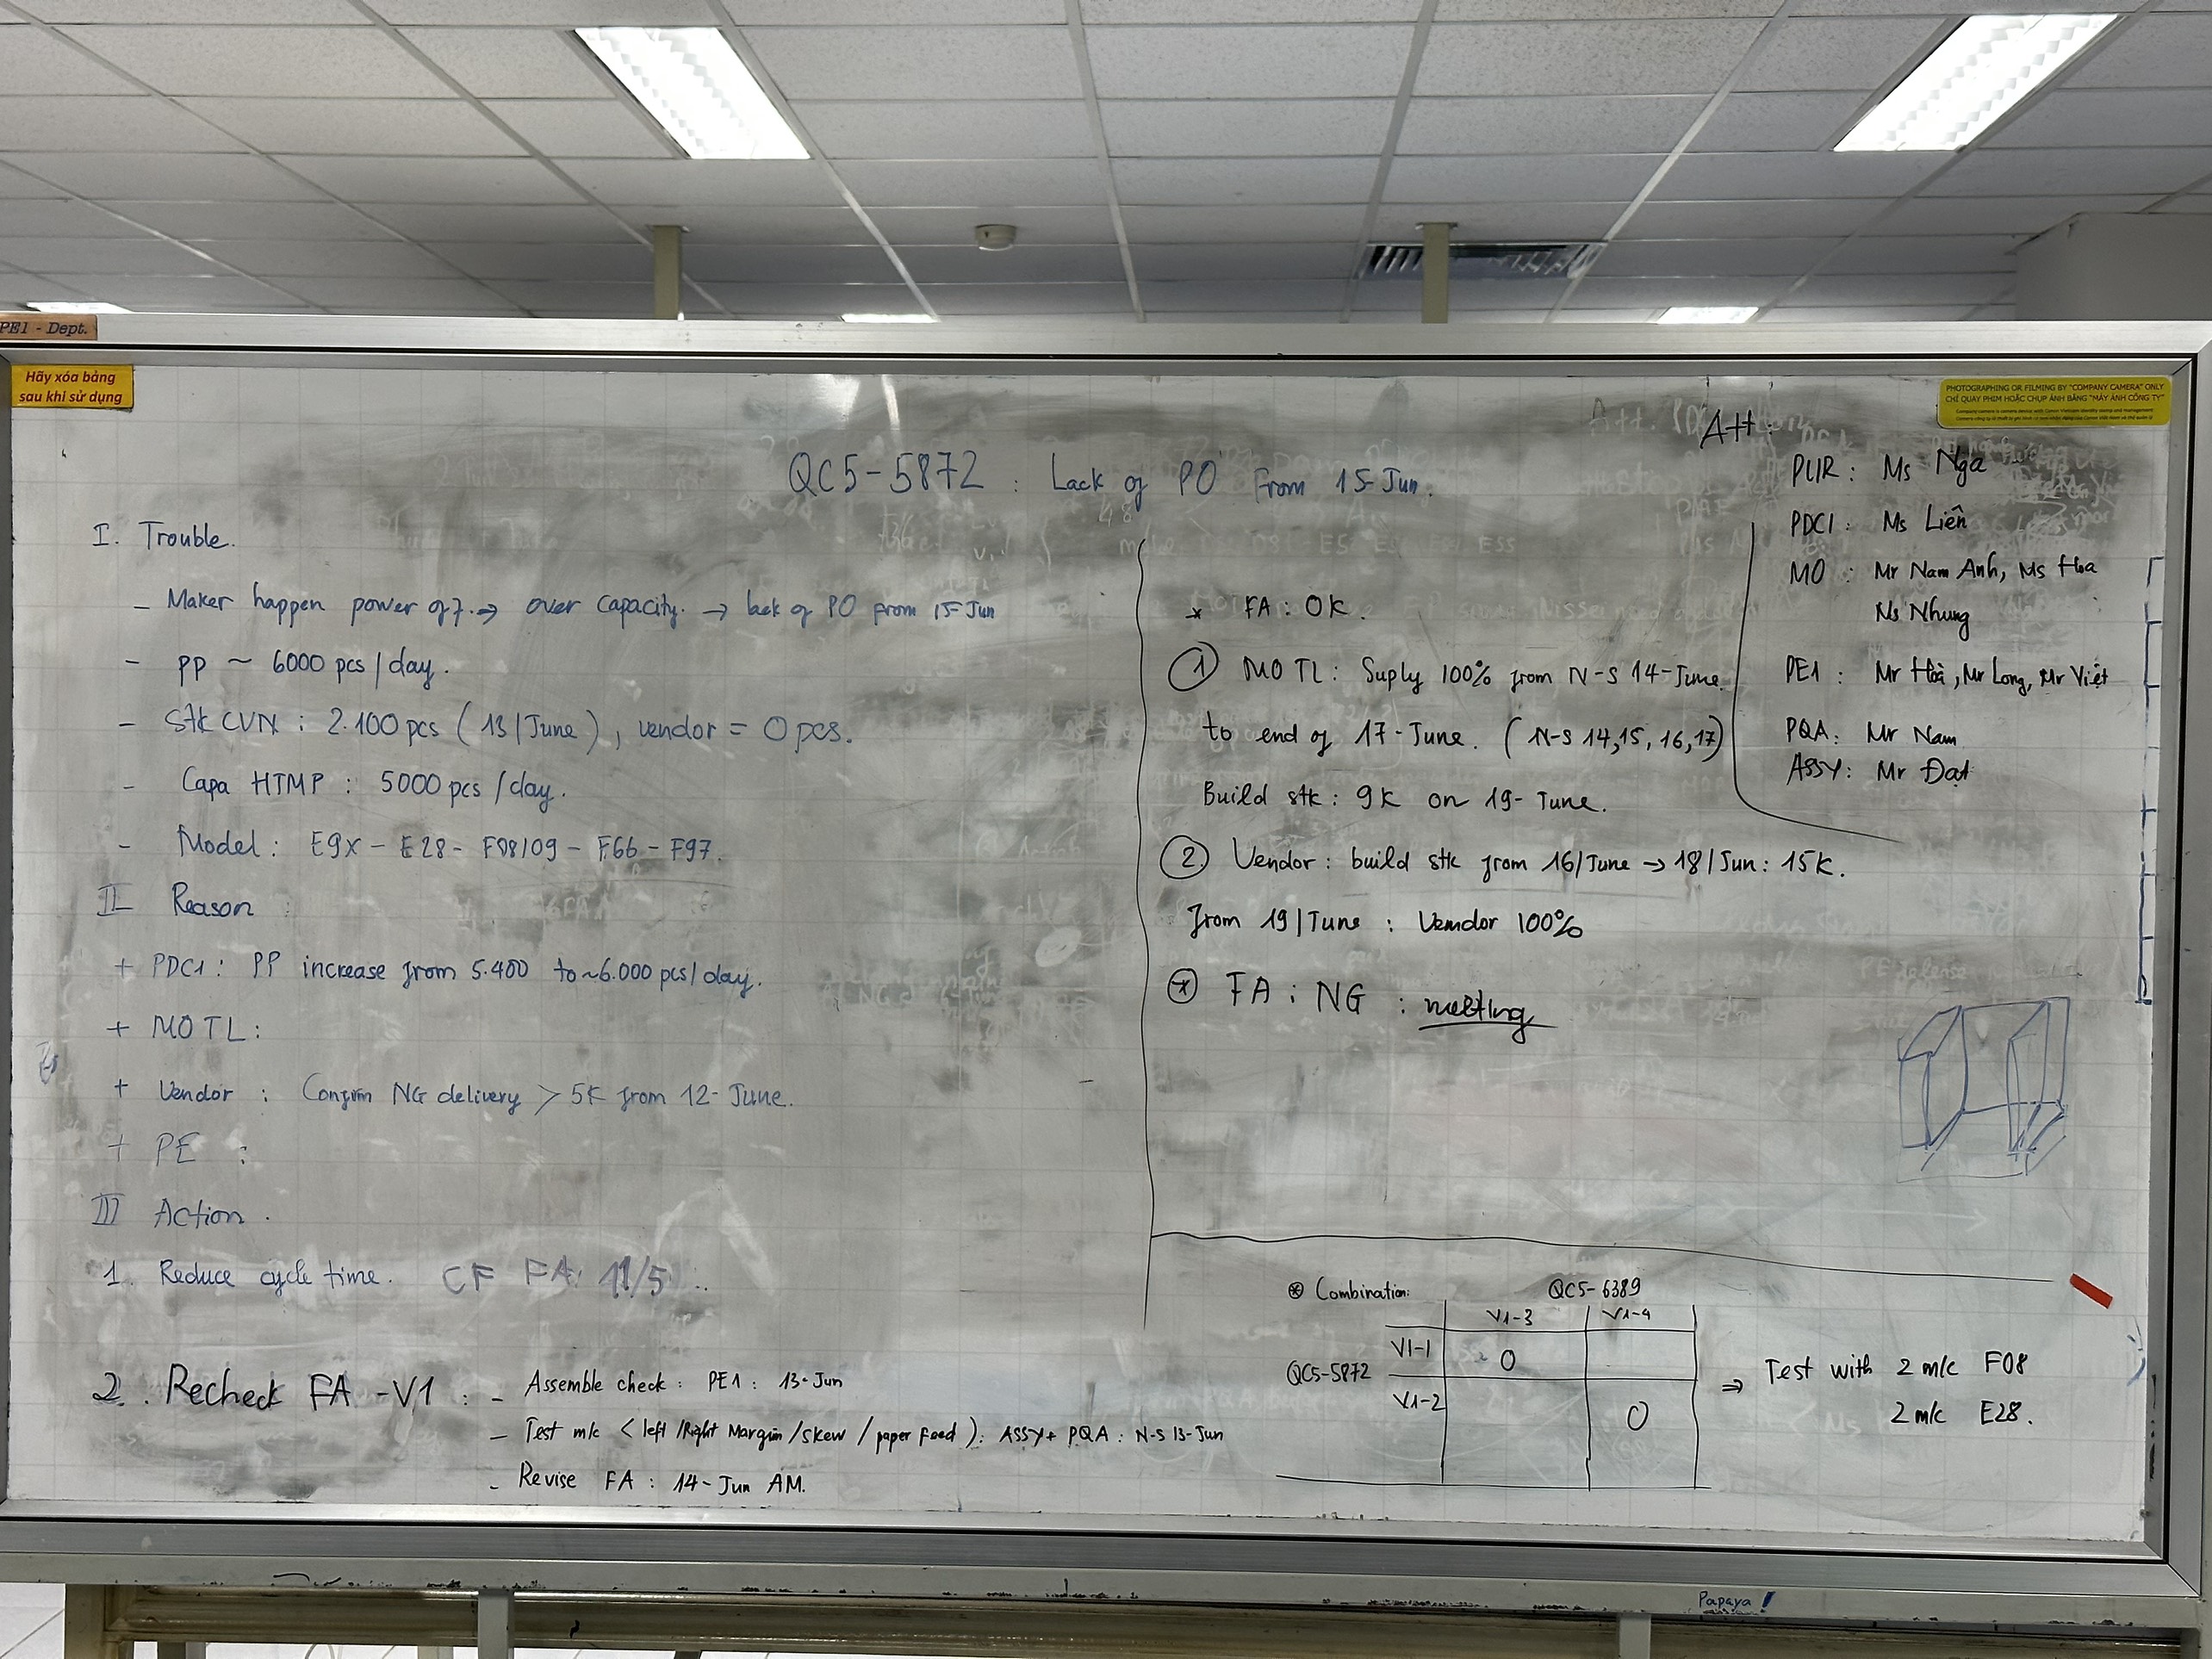 PE1 - Dept.
Hãy xóa bảng
sau khi sử dụng
PHOTOGRAPHING OR FILMING BY "COMPANY CAMERA" ONLY
CHỈ QUAY PHIM HOẶC CHỤP ẢNH BẰNG "MÁY ẢNH CÔNG TY"
QC5-5872 : Lack of PO From 15-Jun.
I. Trouble.
- Maker happen power off. → over capacity. → lack of PO from 15-Jun
- pp ~ 6000 pcs/day.
- Stk CVN : 2.100 pcs (13/June), vendor = 0 pcs.
- Capa HTMP : 5000 pcs/day.
- Model: E9X - E28 - F08/09 - F66 - F97.
II Reason
+ PDC1: PP increase from 5.400 to ~6.000 pcs/day.
+ MO TL:
+ Vendor : Confirm NG delivery > 5K from 12-June.
+ PE :
III Action.
1. Reduce cycle time. CF FA: 11/5
2. Recheck FA -V1 : - Assemble check : PE1 : 13-Jun
- Test m/c < left/Right Margin/skew/paper Feed): ASSY+ PQA : N-S 13-Jun
- Revise FA : 14-Jun AM.
* FA : OK.
① MO TL: Suply 100% from N-S 14-June.
to end of 17-June. (N-S 14,15, 16,17)
Build stk : 9K on 19-June.
② Vendor : build stk from 16/June → 18/Jun: 15K.
from 19/June : Vendor 100%
⊛ FA : NG : meeting
Att:
PUR: Ms Nga
PDC1: Ms Liên
MO : Mr Nam Anh, Ms Hoa
Ms Nhung
PE1 : Mr Hoà, Mr Long, Mr Việt
PQA: Mr Nam
ASSY: Mr Đạt
⊛ Combination: QC5-6389
V1-3 V1-4
QC5-5872 V1-1 O
V1-2 O
⇒ Test with 2 m/c F08
2 m/c E28.
Papaya!